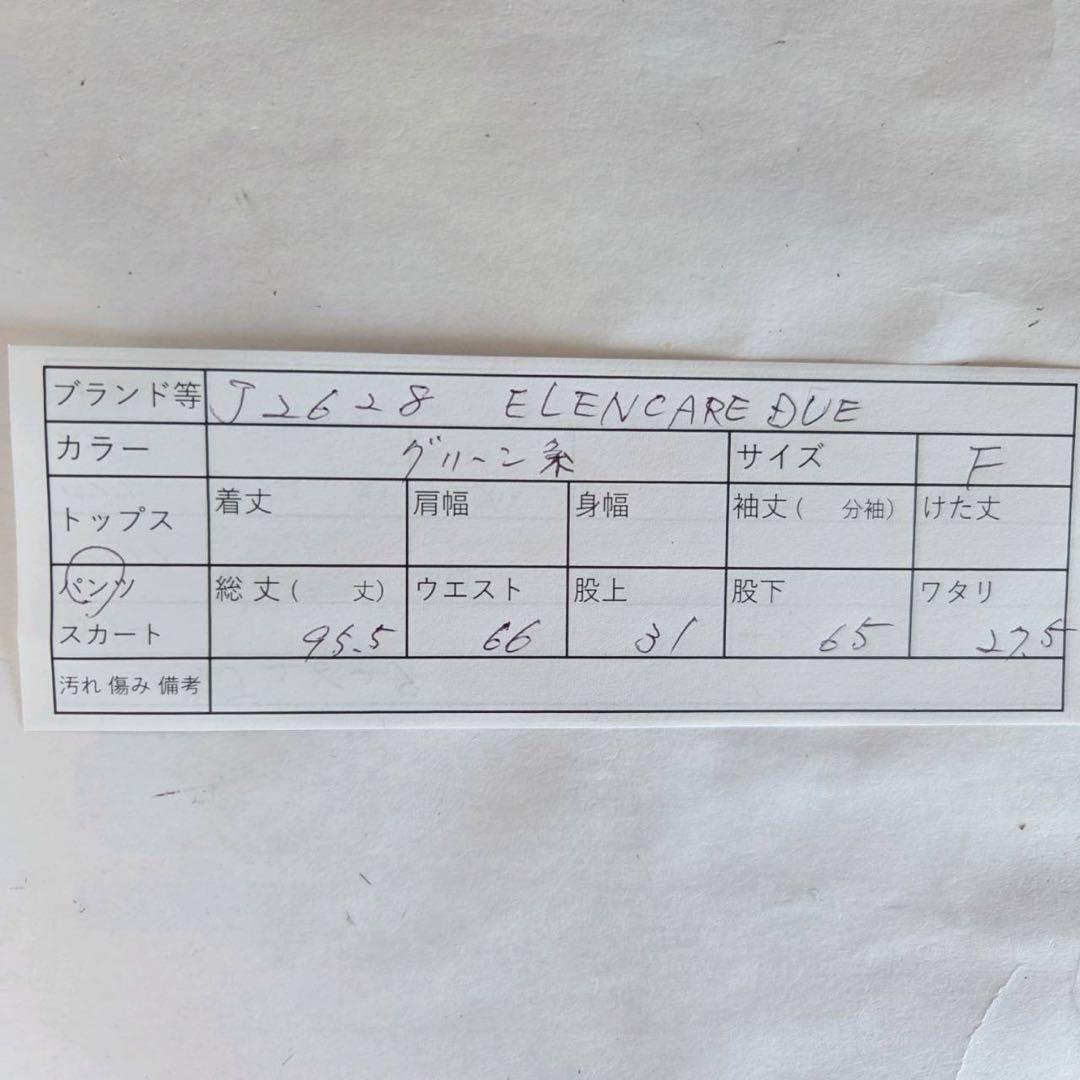 ブランド等 J2628 ELENCARE DUE
カラー グリーン系 サイズ F
トップス 着丈 肩幅 身幅 袖丈( 分袖) けた丈
パンツ 総丈( 丈) ウエスト 股上 股下 ワタリ
スカート 95.5 66 31 65 27.5
汚れ 傷み 備考